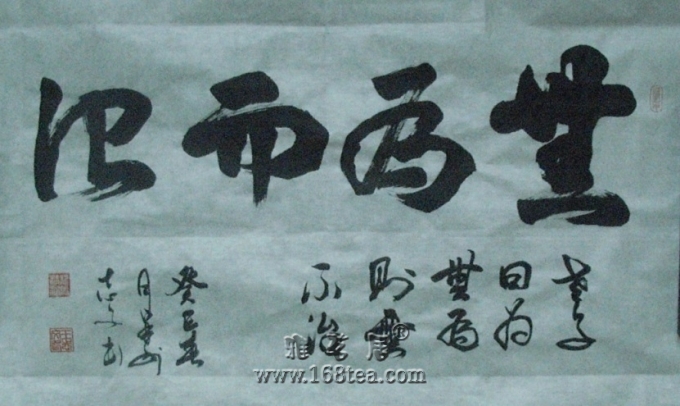 無为而治
老子
曰为
無为
則無
不治
癸巳春
www.168tea.com